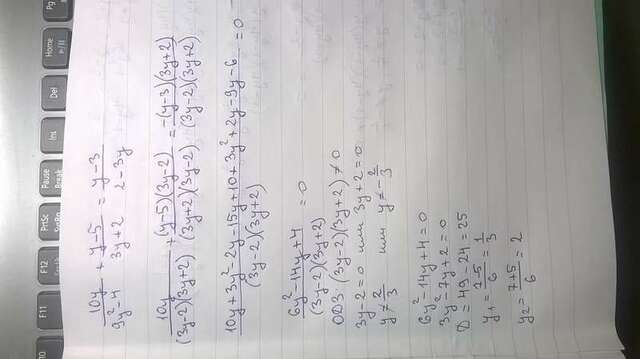 10y/(9y²-4) + (y-5)/(3y+2) = (y-3)/(2-3y)
10y/((3y-2)(3y+2)) + (y-5)(3y-2)/((3y+2)(3y-2)) = -(y-3)(3y+2)/((3y-2)(3y+2))
(10y+3y²-2y-15y+10+3y²+2y-9y-6)/((3y-2)(3y+2)) = 0
(6y²-14y+4)/((3y-2)(3y+2)) = 0
ОДЗ (3y-2)(3y+2)≠0
3y-2=0 или 3y+2=0
y≠2/3 или y≠-2/3
6y²-14y+4=0
3y²-7y+2=0
D=49-24=25
y₁=(7-5)/6=1/3
y₂=(7+5)/6=2
Pg
Home
Del
Ins
Pause
Break
PrtSc
SysRq
F12
F11
F10